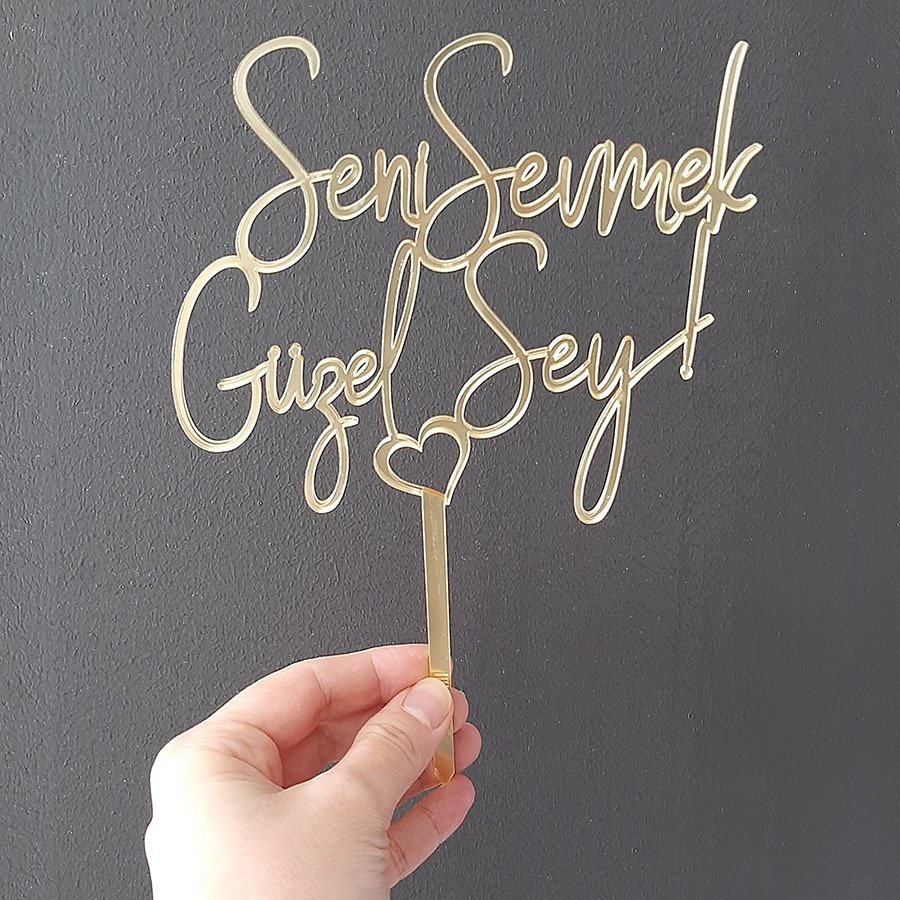 Seni Sevmek
Güzel Sey!